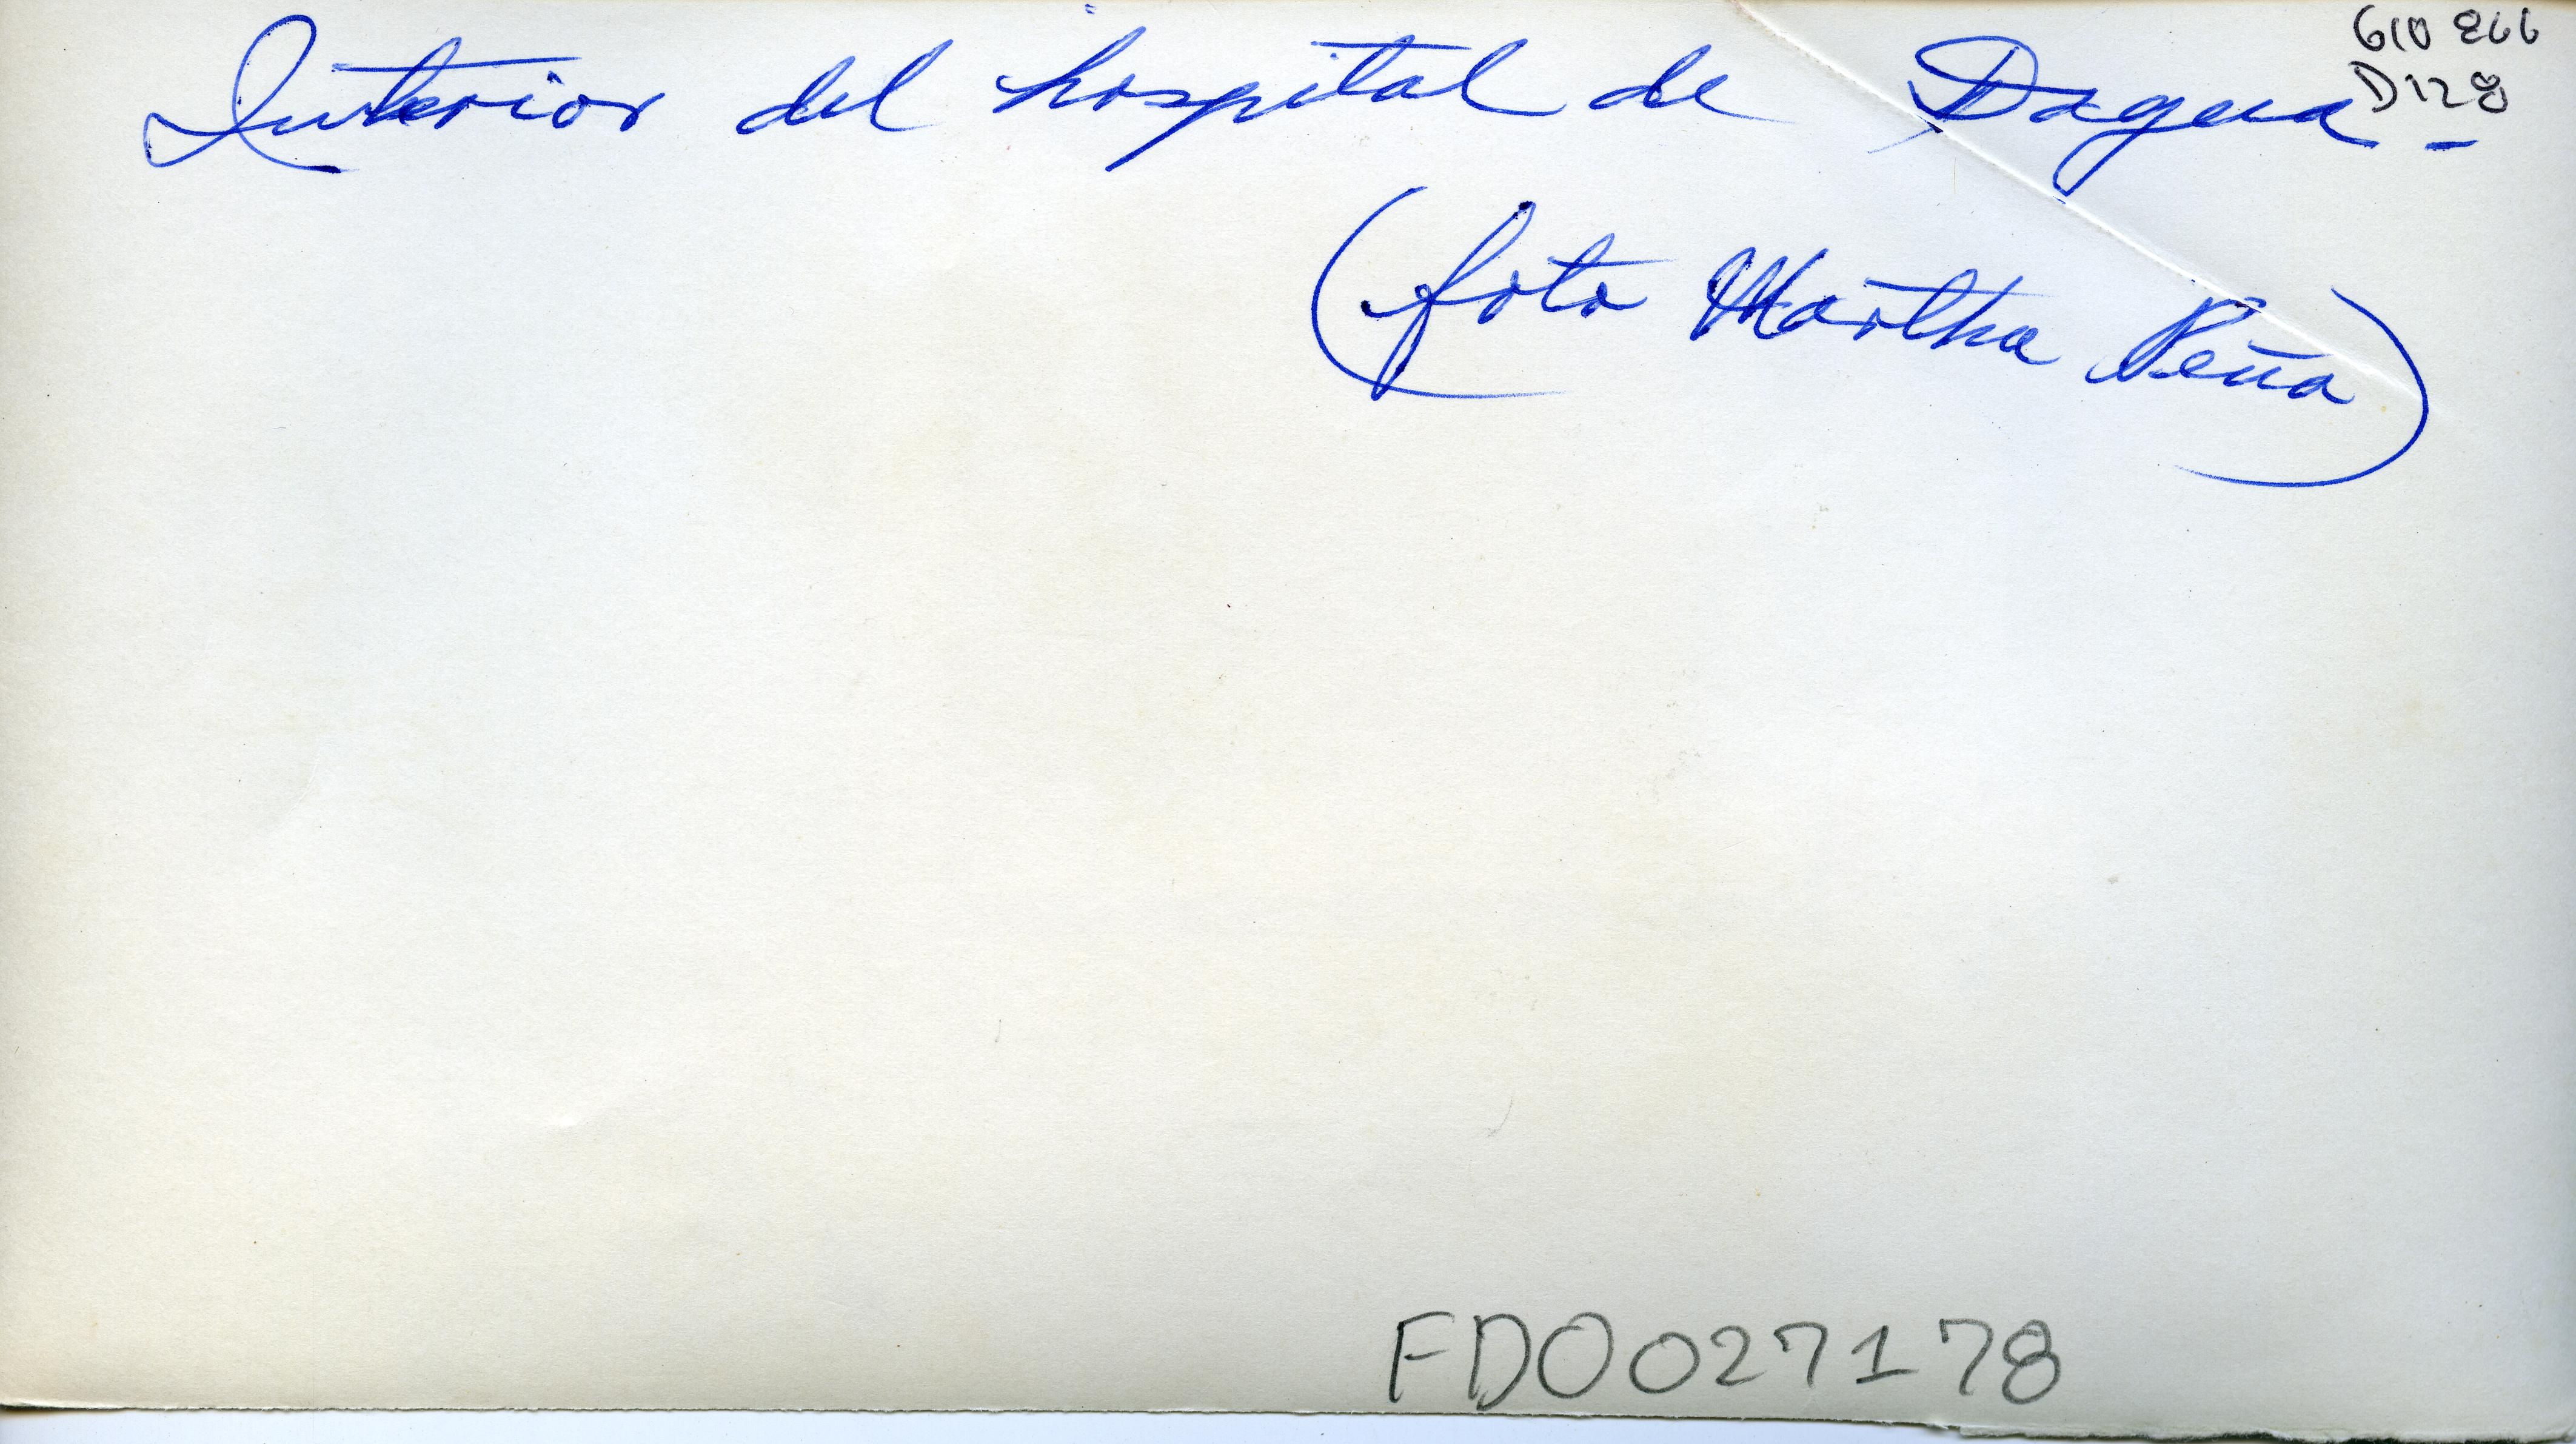 610 866
D128
Interior del hospital de Dagua -
(foto Martha Peña)
FDO027178